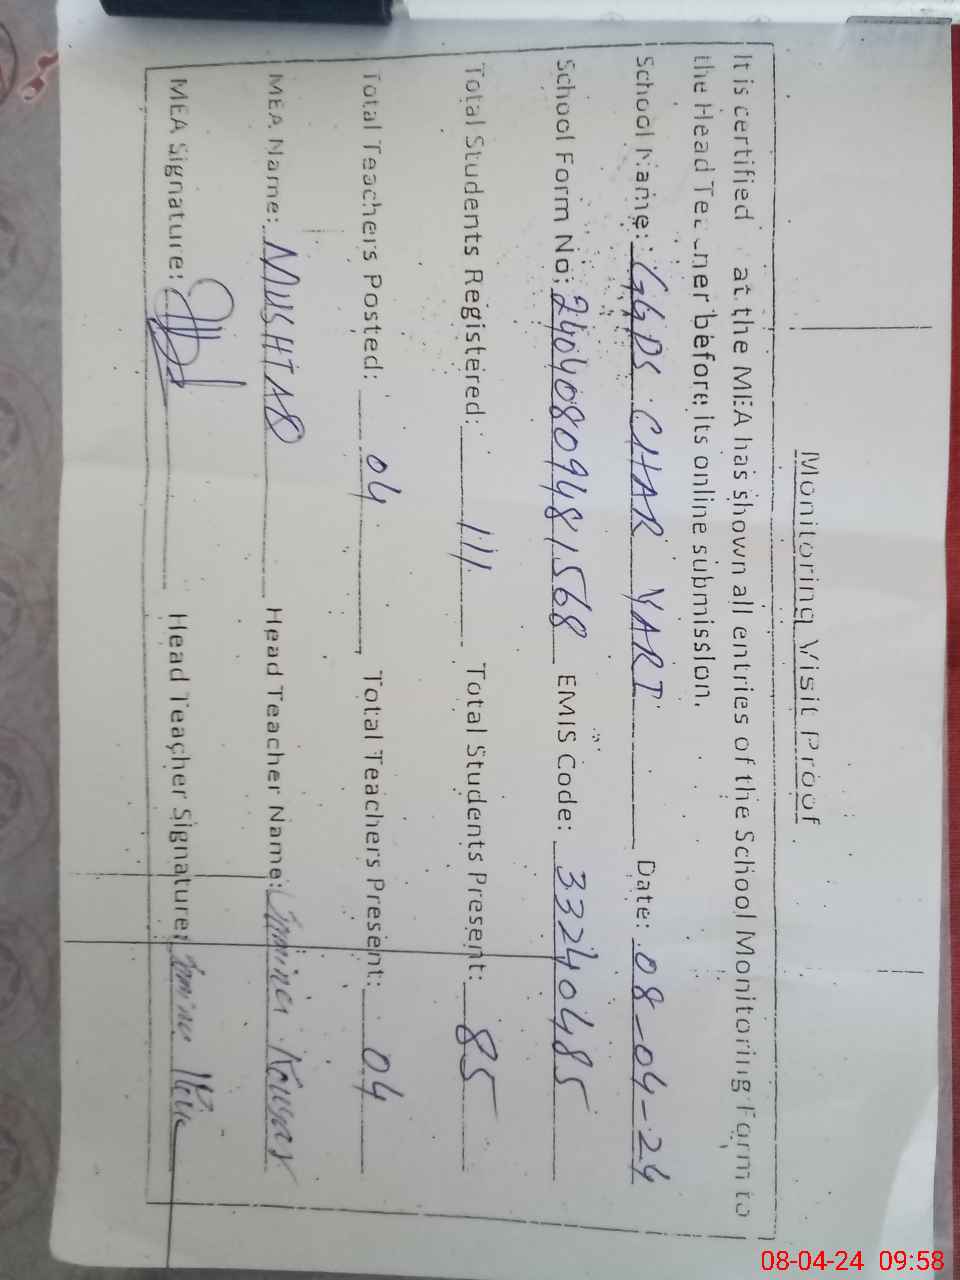 Monitoring Visit Proof
It is certified at the MEA has shown all entries of the School Monitoring Form to
the Head Teacher before its online submission.
School Name: GGPS CHAR YARI Date: 08-04-24
School Form No: 24040809481568 EMIS Code: 33240485
Total Students Registered: 111 Total Students Present: 85
Total Teachers Posted: 04 Total Teachers Present: 04
MEA Name: MUSHTAQ Head Teacher Name: Kousar
MEA Signature: Head Teacher Signature:
08-04-24 09:58